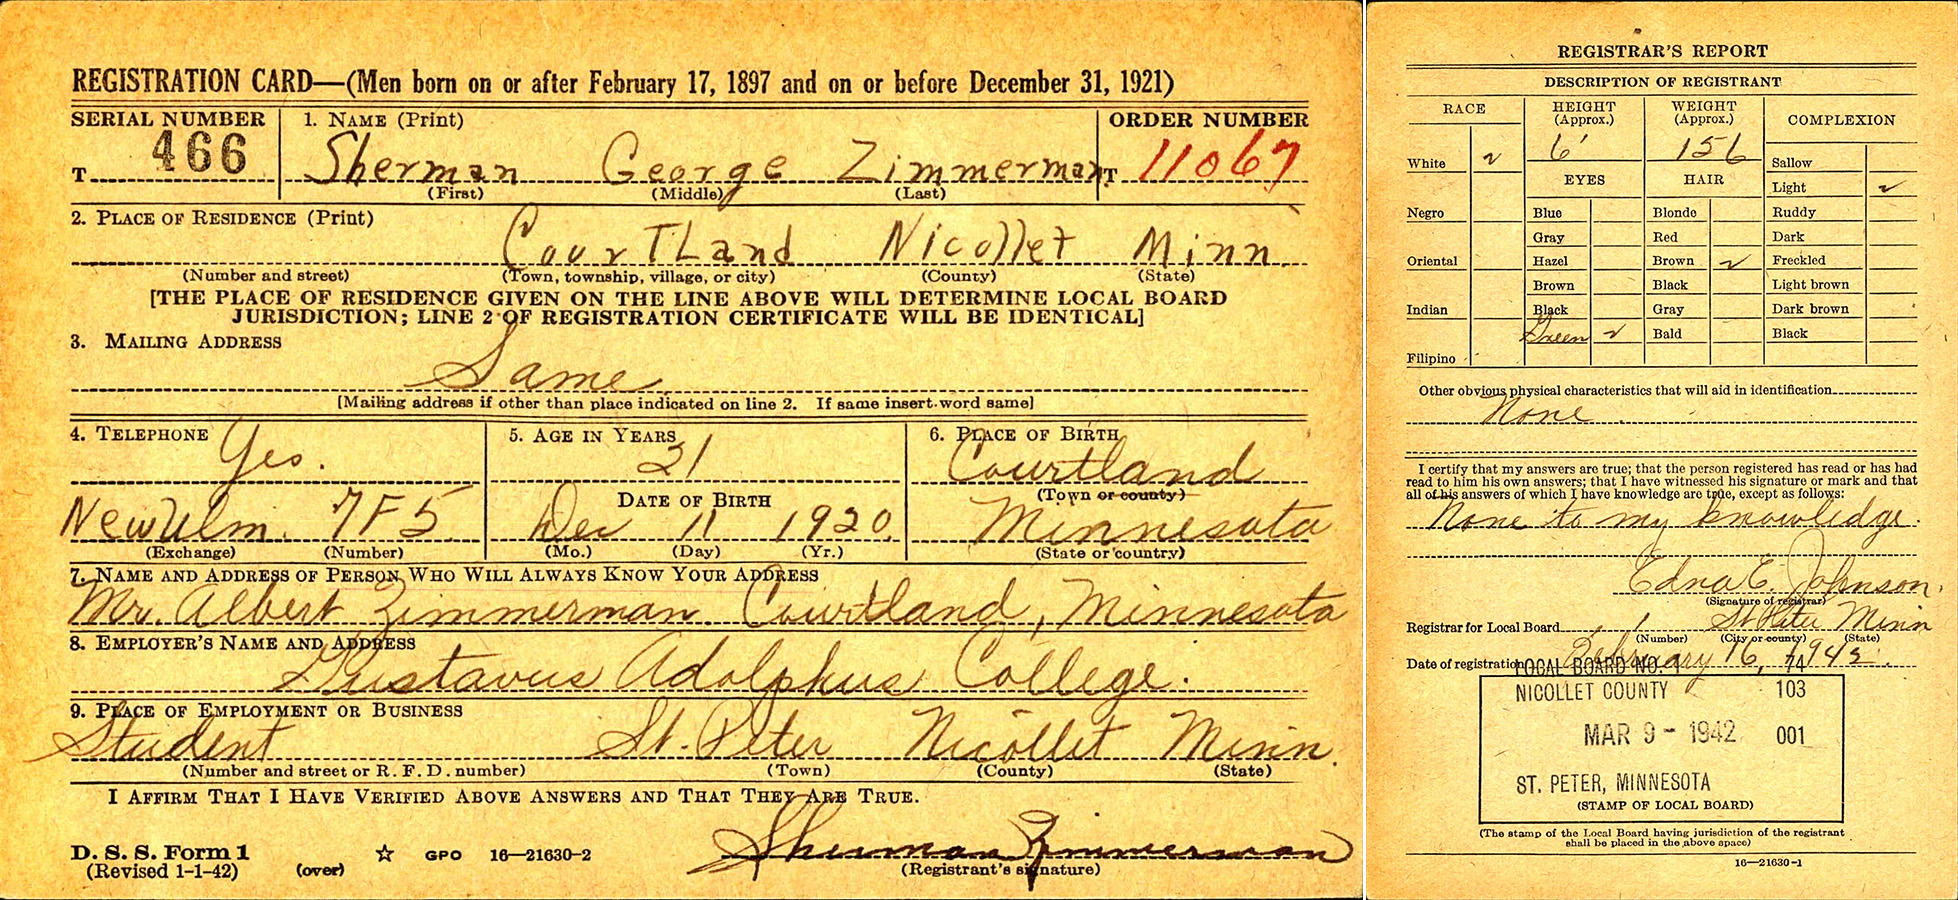 REGISTRATION CARD—(Men born on or after February 17, 1897 and on or before December 31, 1921)
SERIAL NUMBER
1. NAME (Print)
ORDER NUMBER
T 466
Sherman George Zimmerman
T 11067
(First) (Middle) (Last)
2. PLACE OF RESIDENCE (Print)
CourTLand Nicollet Minn.
(Number and street) (Town, township, village, or city) (County) (State)
[THE PLACE OF RESIDENCE GIVEN ON THE LINE ABOVE WILL DETERMINE LOCAL BOARD
JURISDICTION; LINE 2 OF REGISTRATION CERTIFICATE WILL BE IDENTICAL]
3. MAILING ADDRESS
Same
[Mailing address if other than place indicated on line 2. If same insert word same]
4. TELEPHONE
Yes.
New Ulm. 7F5
(Exchange) (Number)
5. AGE IN YEARS
21
DATE OF BIRTH
Dec 11 1920.
(Mo.) (Day) (Yr.)
6. PLACE OF BIRTH
Courtland
(Town or county)
Minnesota
(State or country)
7. NAME AND ADDRESS OF PERSON WHO WILL ALWAYS KNOW YOUR ADDRESS
Mr. Albert Zimmerman Courtland, Minnesota
8. EMPLOYER'S NAME AND ADDRESS
Gustavus Adolphus College.
9. PLACE OF EMPLOYMENT OR BUSINESS
Student St. Peter Nicollet Minn.
(Number and street or R. F. D. number) (Town) (County) (State)
I AFFIRM THAT I HAVE VERIFIED ABOVE ANSWERS AND THAT THEY ARE TRUE.
Sherman Zimmerman
(Registrant's signature)
D. S. S. Form 1
(Revised 1-1-42) (over) GPO 16—21630-2
REGISTRAR'S REPORT
DESCRIPTION OF REGISTRANT
RACE
White
Negro
Oriental
Indian
Filipino
HEIGHT
(Approx.)
6'
EYES
Blue
Gray
Hazel
Brown
Black
Green
WEIGHT
(Approx.)
156
HAIR
Blonde
Red
Brown
Black
Gray
Bald
COMPLEXION
Sallow
Light
Ruddy
Dark
Freckled
Light brown
Dark brown
Black
Other obvious physical characteristics that will aid in identification
None.
I certify that my answers are true; that the person registered has read or has had
read to him his own answers; that I have witnessed his signature or mark and that
all of his answers of which I have knowledge are true, except as follows:
None to my knowledge.
Edna E. Johnson.
(Signature of registrar)
Registrar for Local Board 1 St Peter Minn
(Number) (City or county) (State)
Date of registration February 16, 1942.
LOCAL BOARD NO. 1 74
NICOLLET COUNTY 103
MAR 9 - 1942 001
ST. PETER, MINNESOTA
(STAMP OF LOCAL BOARD)
(The stamp of the Local Board having jurisdiction of the registrant
shall be placed in the above space)
16—21630-1